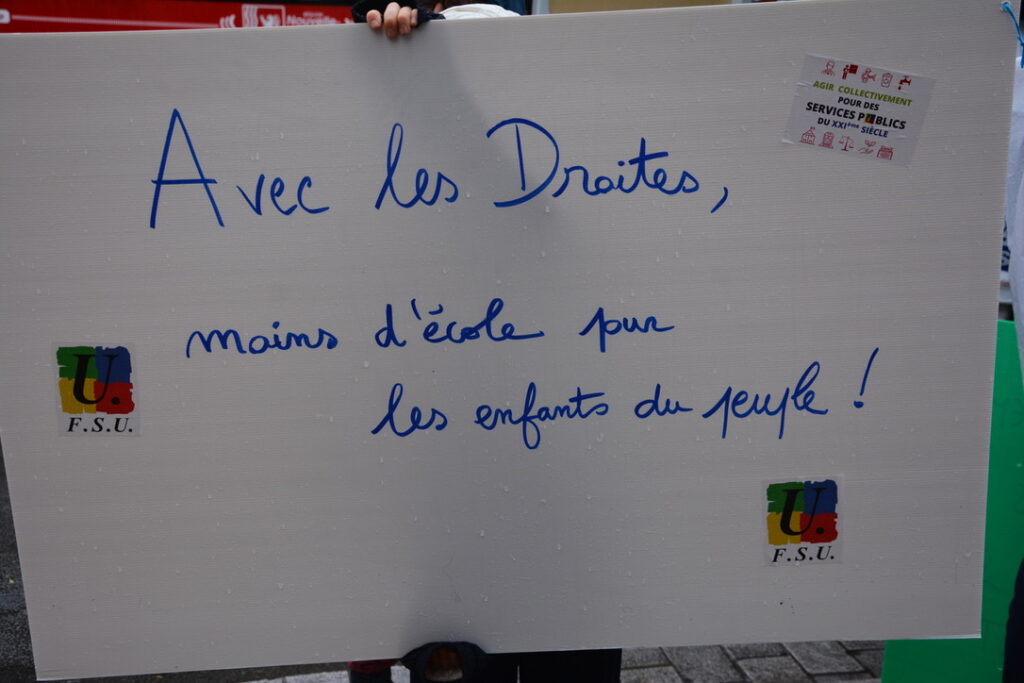 Avec les Droites,
moins d'école pour
les enfants du peuple !
AGIR COLLECTIVEMENT
POUR DES
SERVICES PUBLICS
DU XXIème SIÈCLE
U.
F.S.U.
U.
F.S.U.